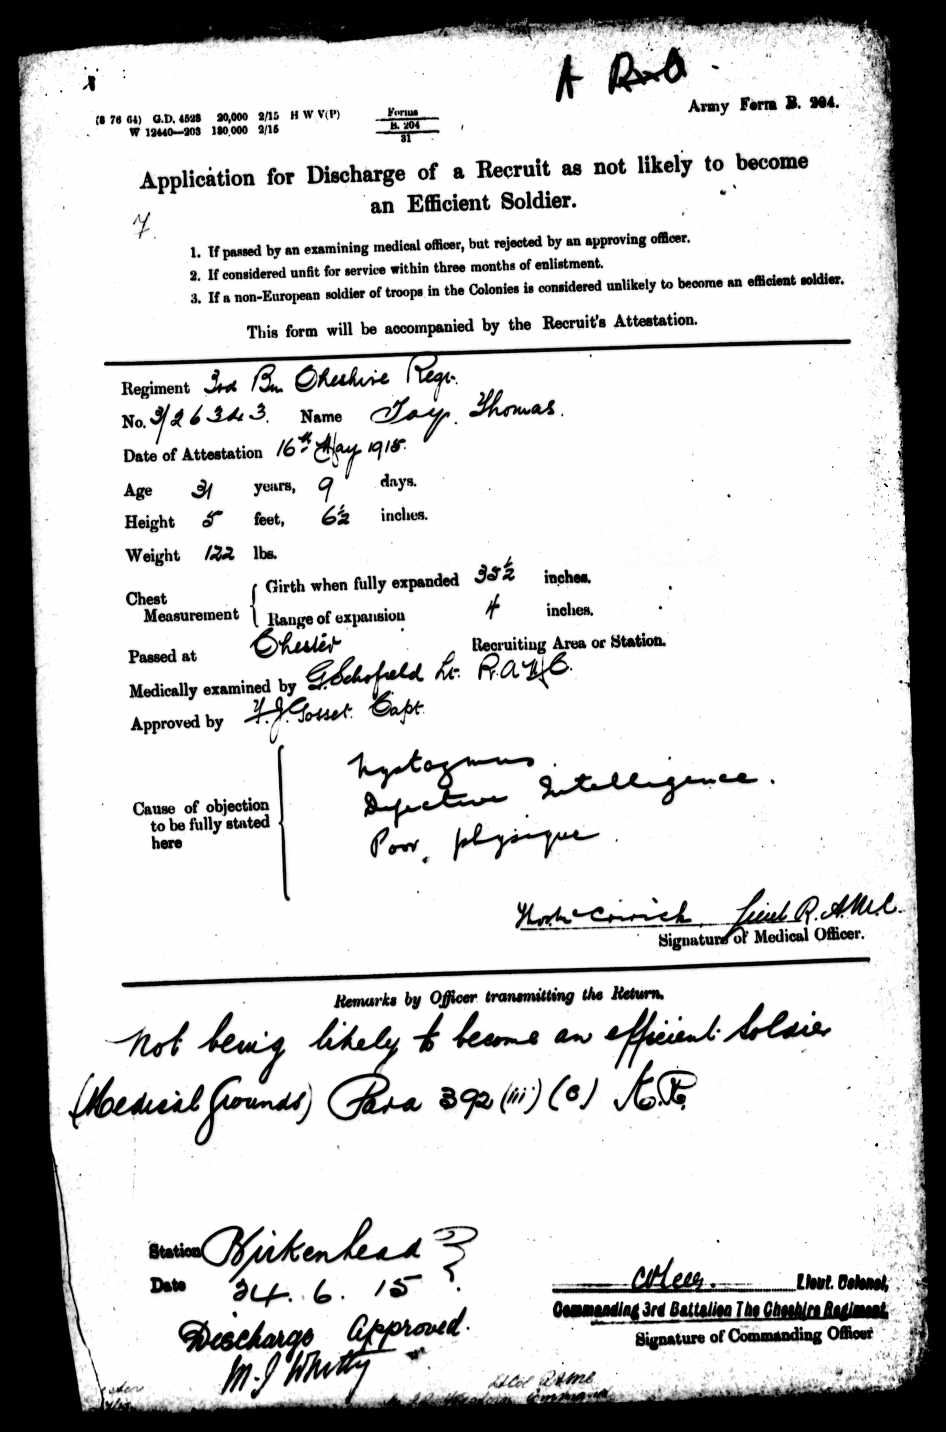 A
Army Form B. 204.
(8 76 64) G.D. 4528 20,000 2/15 H W V(P)
W 12440—203 180,000 2/15
Forms
B. 204
31
Application for Discharge of a Recruit as not likely to become
an Efficient Soldier.
7.
1. If passed by an examining medical officer, but rejected by an approving officer.
2. If considered unfit for service within three months of enlistment.
3. If a non-European soldier of troops in the Colonies is considered unlikely to become an efficient soldier.
This form will be accompanied by the Recruit's Attestation.
Regiment 3rd Bn Cheshire Regt.
No. 3/26343. Name Jay. Thomas.
Date of Attestation 16th May 1915.
Age 31 years, 9 days.
Height 5 feet, 6½ inches.
Weight 122 lbs.
Chest Measurement Girth when fully expanded 35½ inches.
Range of expansion 4 inches.
Passed at Chester Recruiting Area or Station.
Medically examined by G. Schofield Lt. R.A.M.C.
Approved by F. J. Gosset. Capt.
Cause of objection to be fully stated here
Nystagmus.
Defective Intelligence.
Poor physique.
Lieut R.A.M.C.
Signature of Medical Officer.
Remarks by Officer transmitting the Return.
Not being likely to become an efficient Soldier
(Medical Grounds) Para 392 (iii) (c) K.R.
Station Birkenhead
Date 24. 6. 15
Lieut. Colonel,
Commanding 3rd Battalion The Cheshire Regiment.
Signature of Commanding Officer
Discharge Approved.
M. J. Whitty
Lt Col RAMC